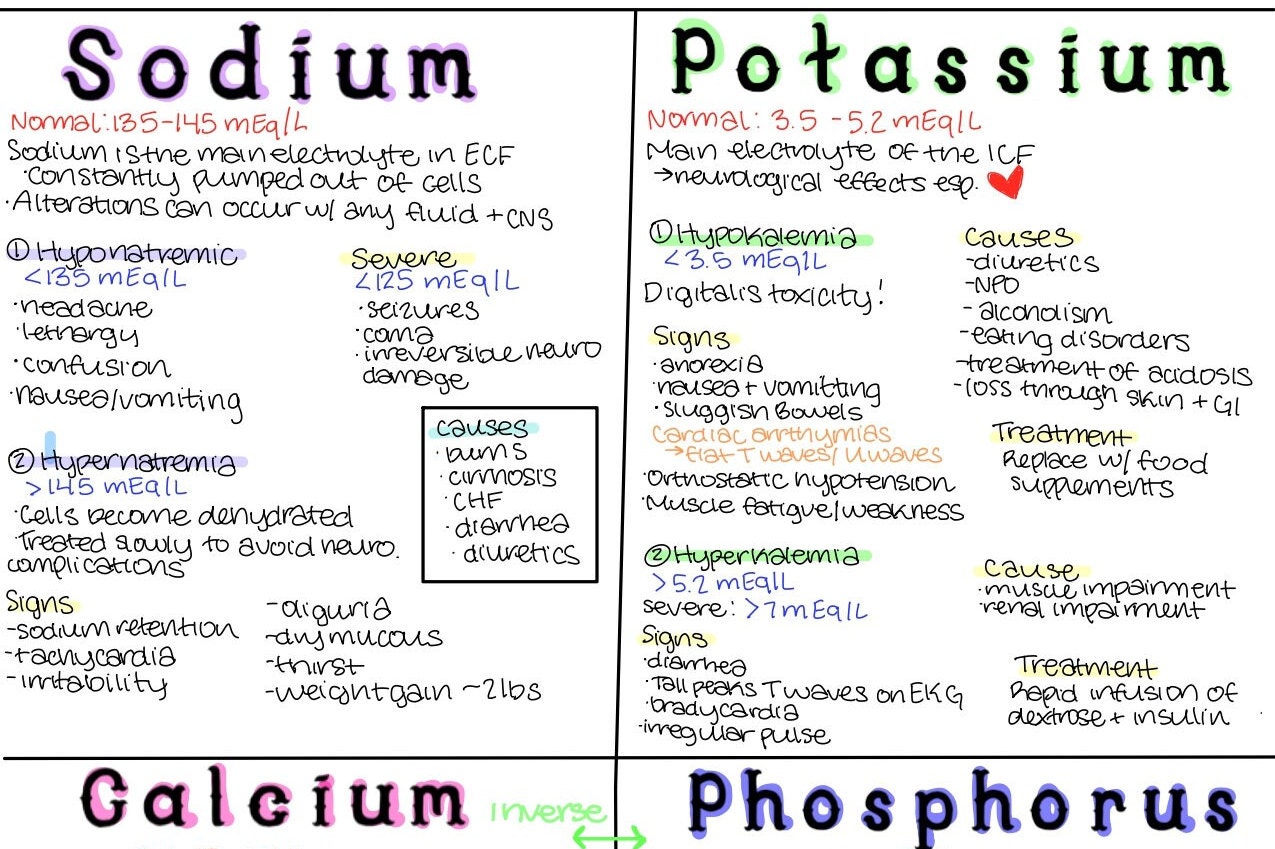 Sodium
Normal: 135-145 mEq/L
Sodium is the main electrolyte in ECF
·constantly pumped out of cells
·Alterations can occur w/ any fluid + CNS
① Hyponatremic
<135 mEq/L
·headache
·lethargy
·confusion
·nausea/vomiting
Severe
<125 mEq/L
·seizures
·coma
·irreversible neuro
damage
② Hypernatremia
>145 mEq/L
·Cells become dehydrated
·Treated slowly to avoid neuro.
complications
causes
·burns
·cirrhosis
·CHF
·diarrhea
·diuretics
Signs
-sodium retention
-tachycardia
-irritability
-oliguria
-dry mucous
-thirst
-weight gain ~2lbs
Potassium
Normal: 3.5 - 5.2 mEq/L
Main electrolyte of the ICF
→neurological effects esp. ❤
① Hypokalemia
<3.5 mEq/L
Digitalis toxicity!
Signs
·anorexia
·nausea + vomitting
·sluggish Bowels
Cardiac arrthymias
→flat T waves/ U waves
·Orthostatic hypotension
·Muscle fatigue/weakness
causes
-diuretics
-NPO
-alcoholism
-eating disorders
-treatment of acidosis
-loss through skin + GI
Treatment
Replace w/ food
supplements
② Hyperkalemia
>5.2 mEq/L
severe: >7 mEq/L
Signs
·diarrhea
·Tall peaks T waves on EKG
·bradycardia
·irregular pulse
Cause
·muscle impairment
·renal impairment
Treatment
Rapid infusion of
dextrose + insulin
Calcium
inverse
↔
Phosphorus